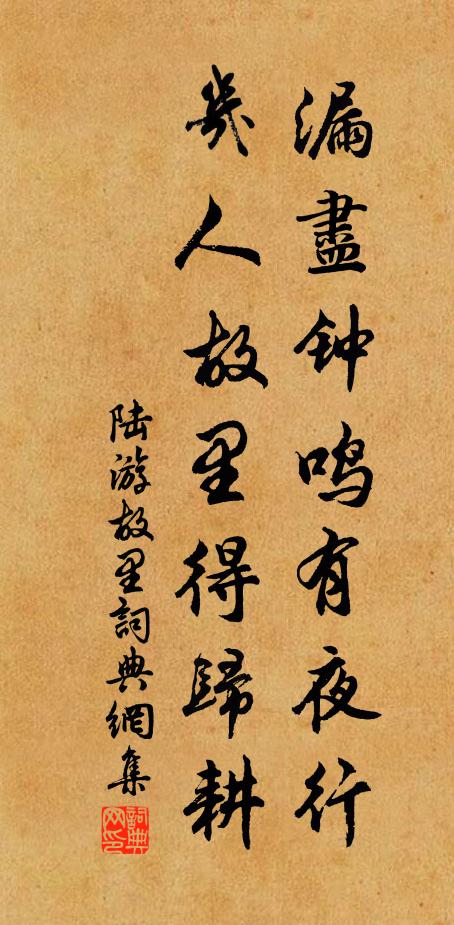 漏盡钟鸣有夜行
幾人故里得歸耕
陆游故里詞典網集
詞典網印